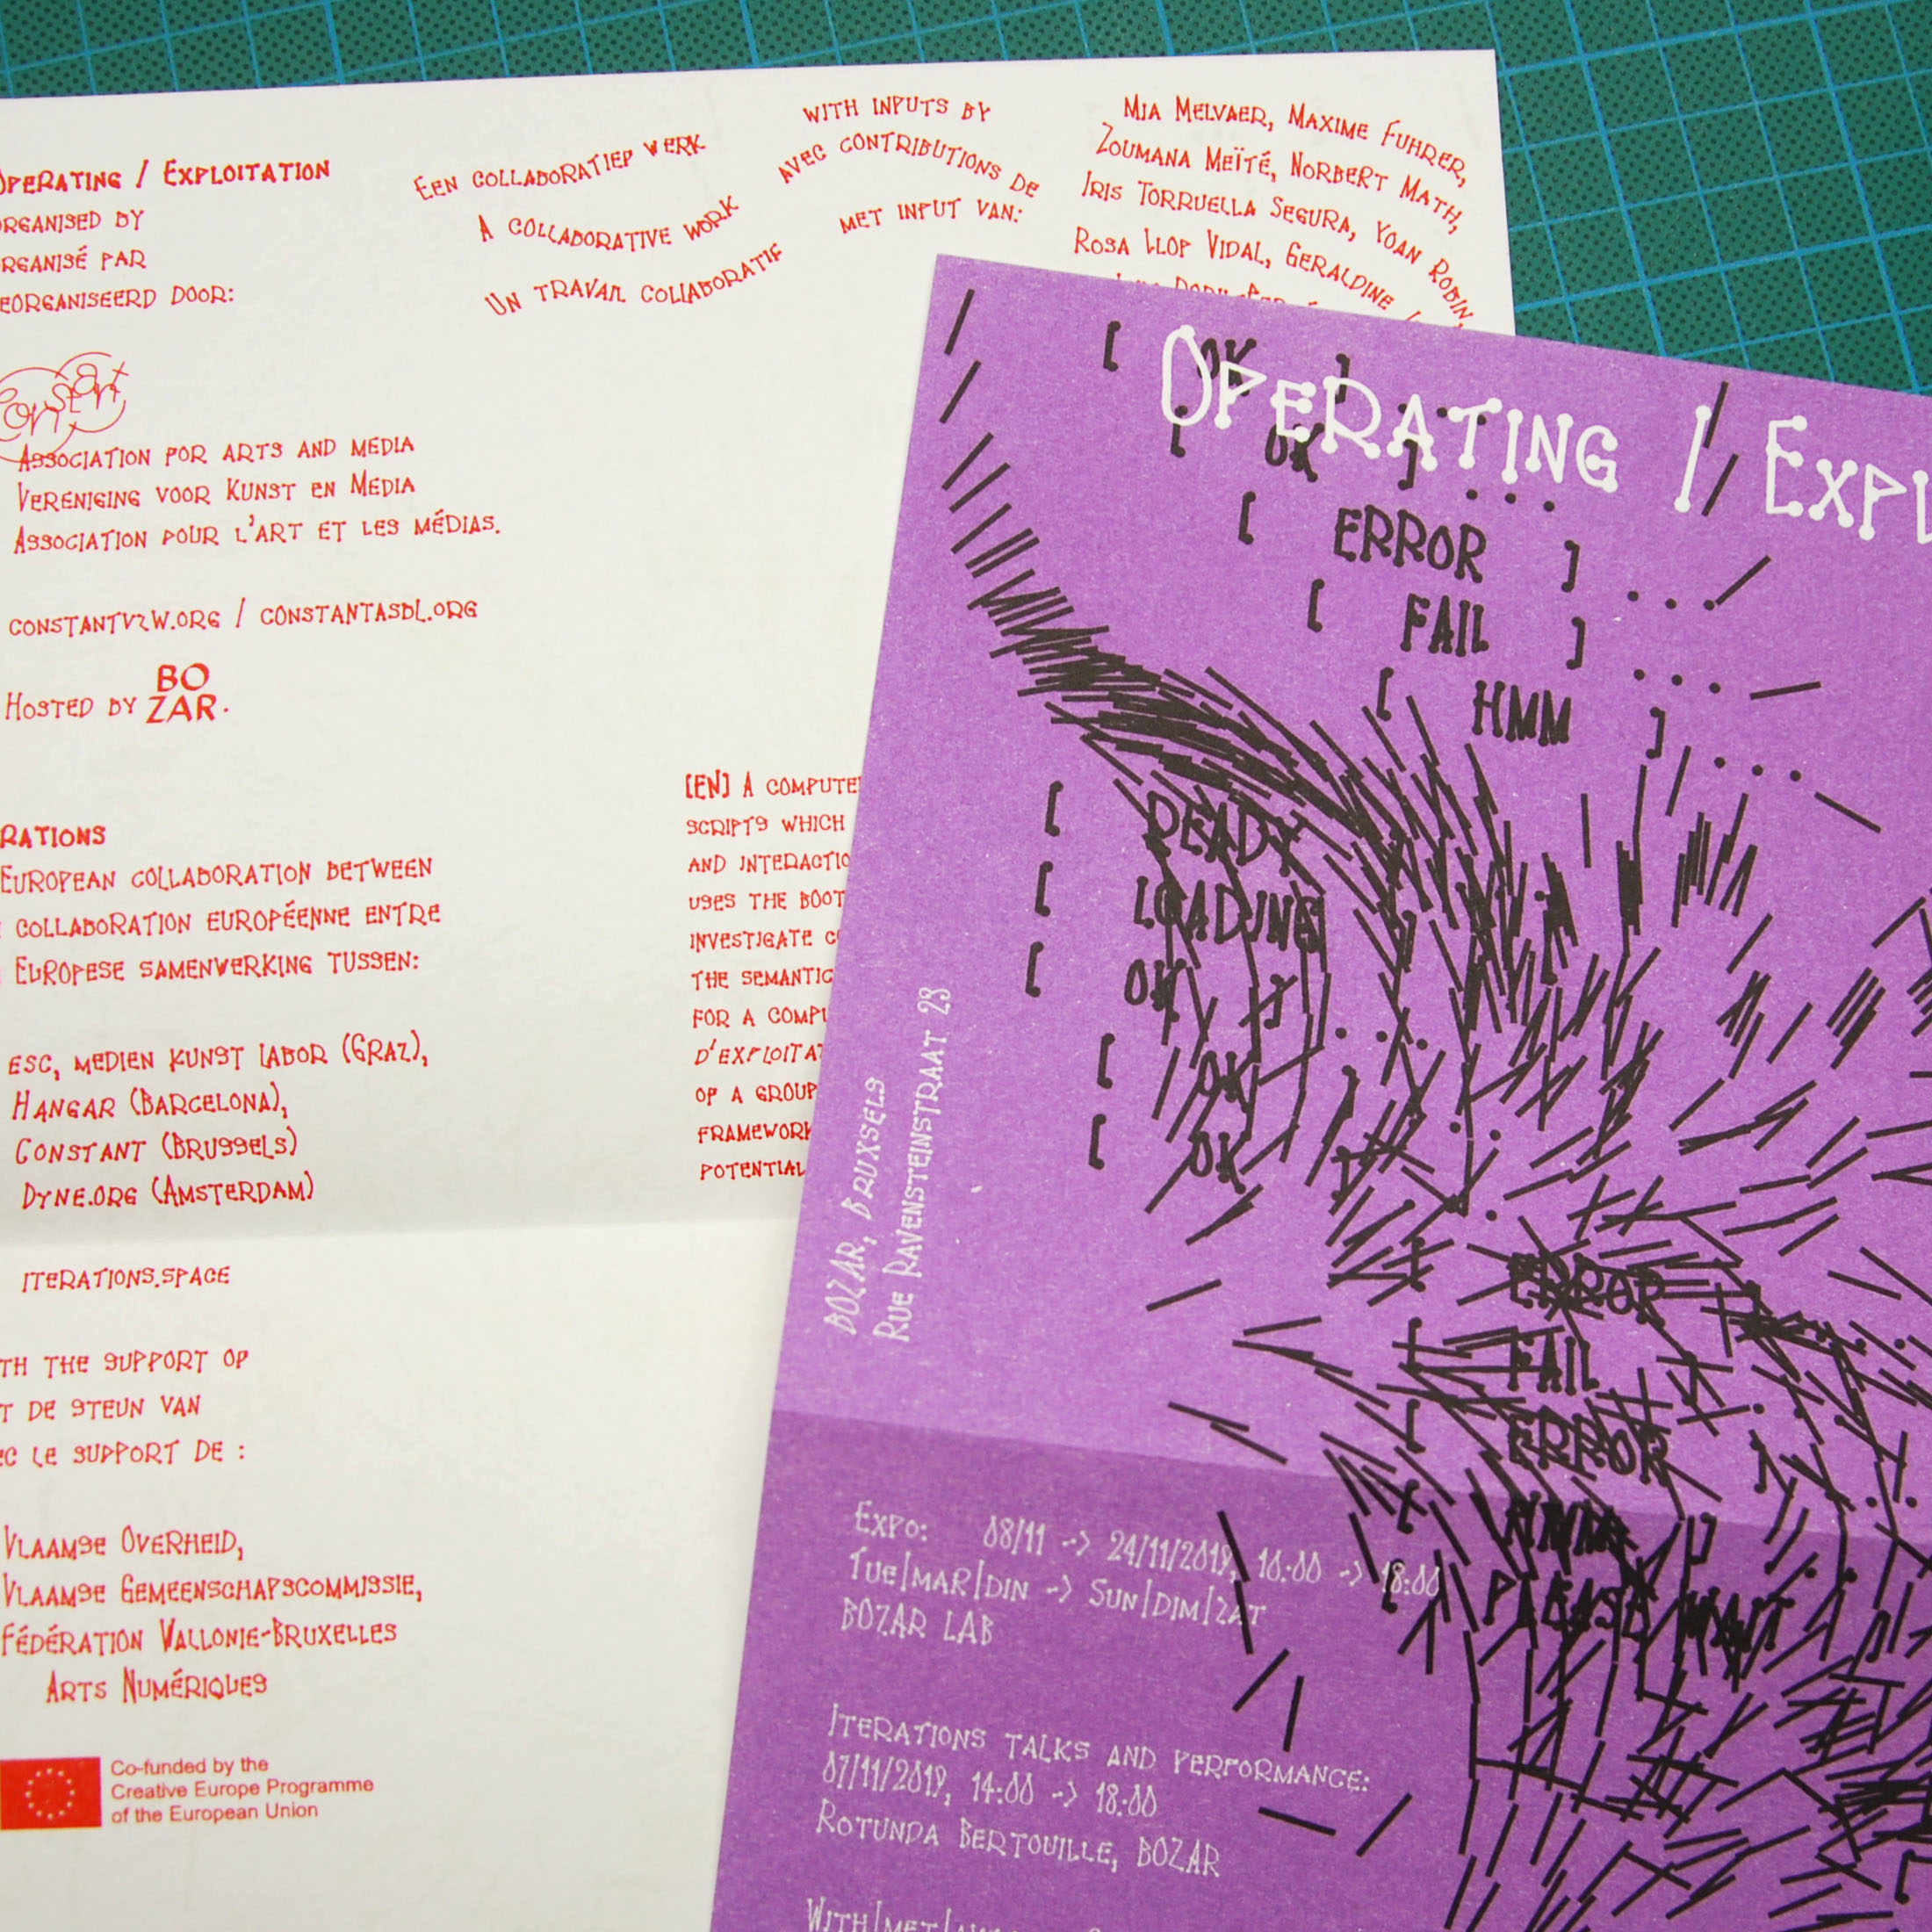 Operating / Exploitation
organised by
organisé par
georganiseerd door:
Een collaboratief werk
A collaborative work
Un travail collaboratif
with inputs by
avec contributions de
met input van:
Mia Melvaer, Maxime Fuhrer,
Zoumana Meïté, Norbert Math,
Iris Torruella Segura, Yoan Robin,
Rosa Llop Vidal, Geraldine
Constant
Association for arts and media
Vereniging voor Kunst en Media
Association pour l'art et les médias.
constantvzw.org / constantasbl.org
Hosted by BO
ZAR.
rations
European collaboration between
collaboration européenne entre
Europese samenwerking tussen:
esc, medien kunst labor (Graz),
Hangar (Barcelona),
Constant (Brussels)
Dyne.org (Amsterdam)
iterations.space
th the support of
t de steun van
ec le support de :
Vlaamse Overheid,
Vlaamse Gemeenschapscommissie,
Fédération Wallonie-Bruxelles
Arts Numériques
Co-funded by the
Creative Europe Programme
of the European Union
[EN] A compute
scripts which
and interactio
uses the boot
investigate c
the semantic
for a compu
d'exploitat
of a group
framework
potential
Operating / Expl
[ OK ]
[ OK ] ...
[ ERROR ] ...
[ FAIL ] ...
[ HMM ] ...
[ READY
[ LOADING
[ OK ] ...
[ OK ]
[ OK ]
[ ERROR
[ FAIL
[ ERROR ]
[ HMM ]
PLEASE WAIT
BOZAR, Bruxsels
Rue Ravensteinstraat 23
Expo: 08/11 -> 24/11/2019, 10:00 -> 18:00
Tue|Mar|Din -> Sun|Dim|Zat
BOZAR LAB
Iterations talks and performance:
07/11/2019, 14:00 -> 18:00
Rotunda Bertouille, BOZAR
With|met|